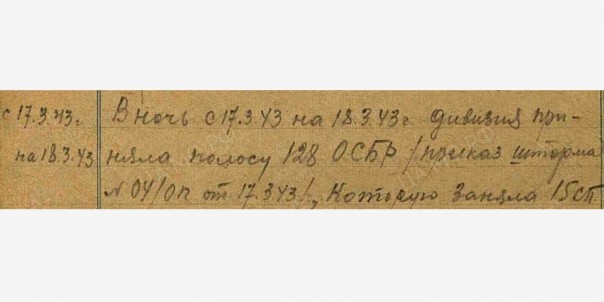 с 17.3.43г. В ночь с 17.3.43 на 18.3.43г. дивизия при-
на 18.3.43 няла полосу 128 ОСБР /приказ шторма
N 04/оп от 17.3.43/, которую заняла 15сп